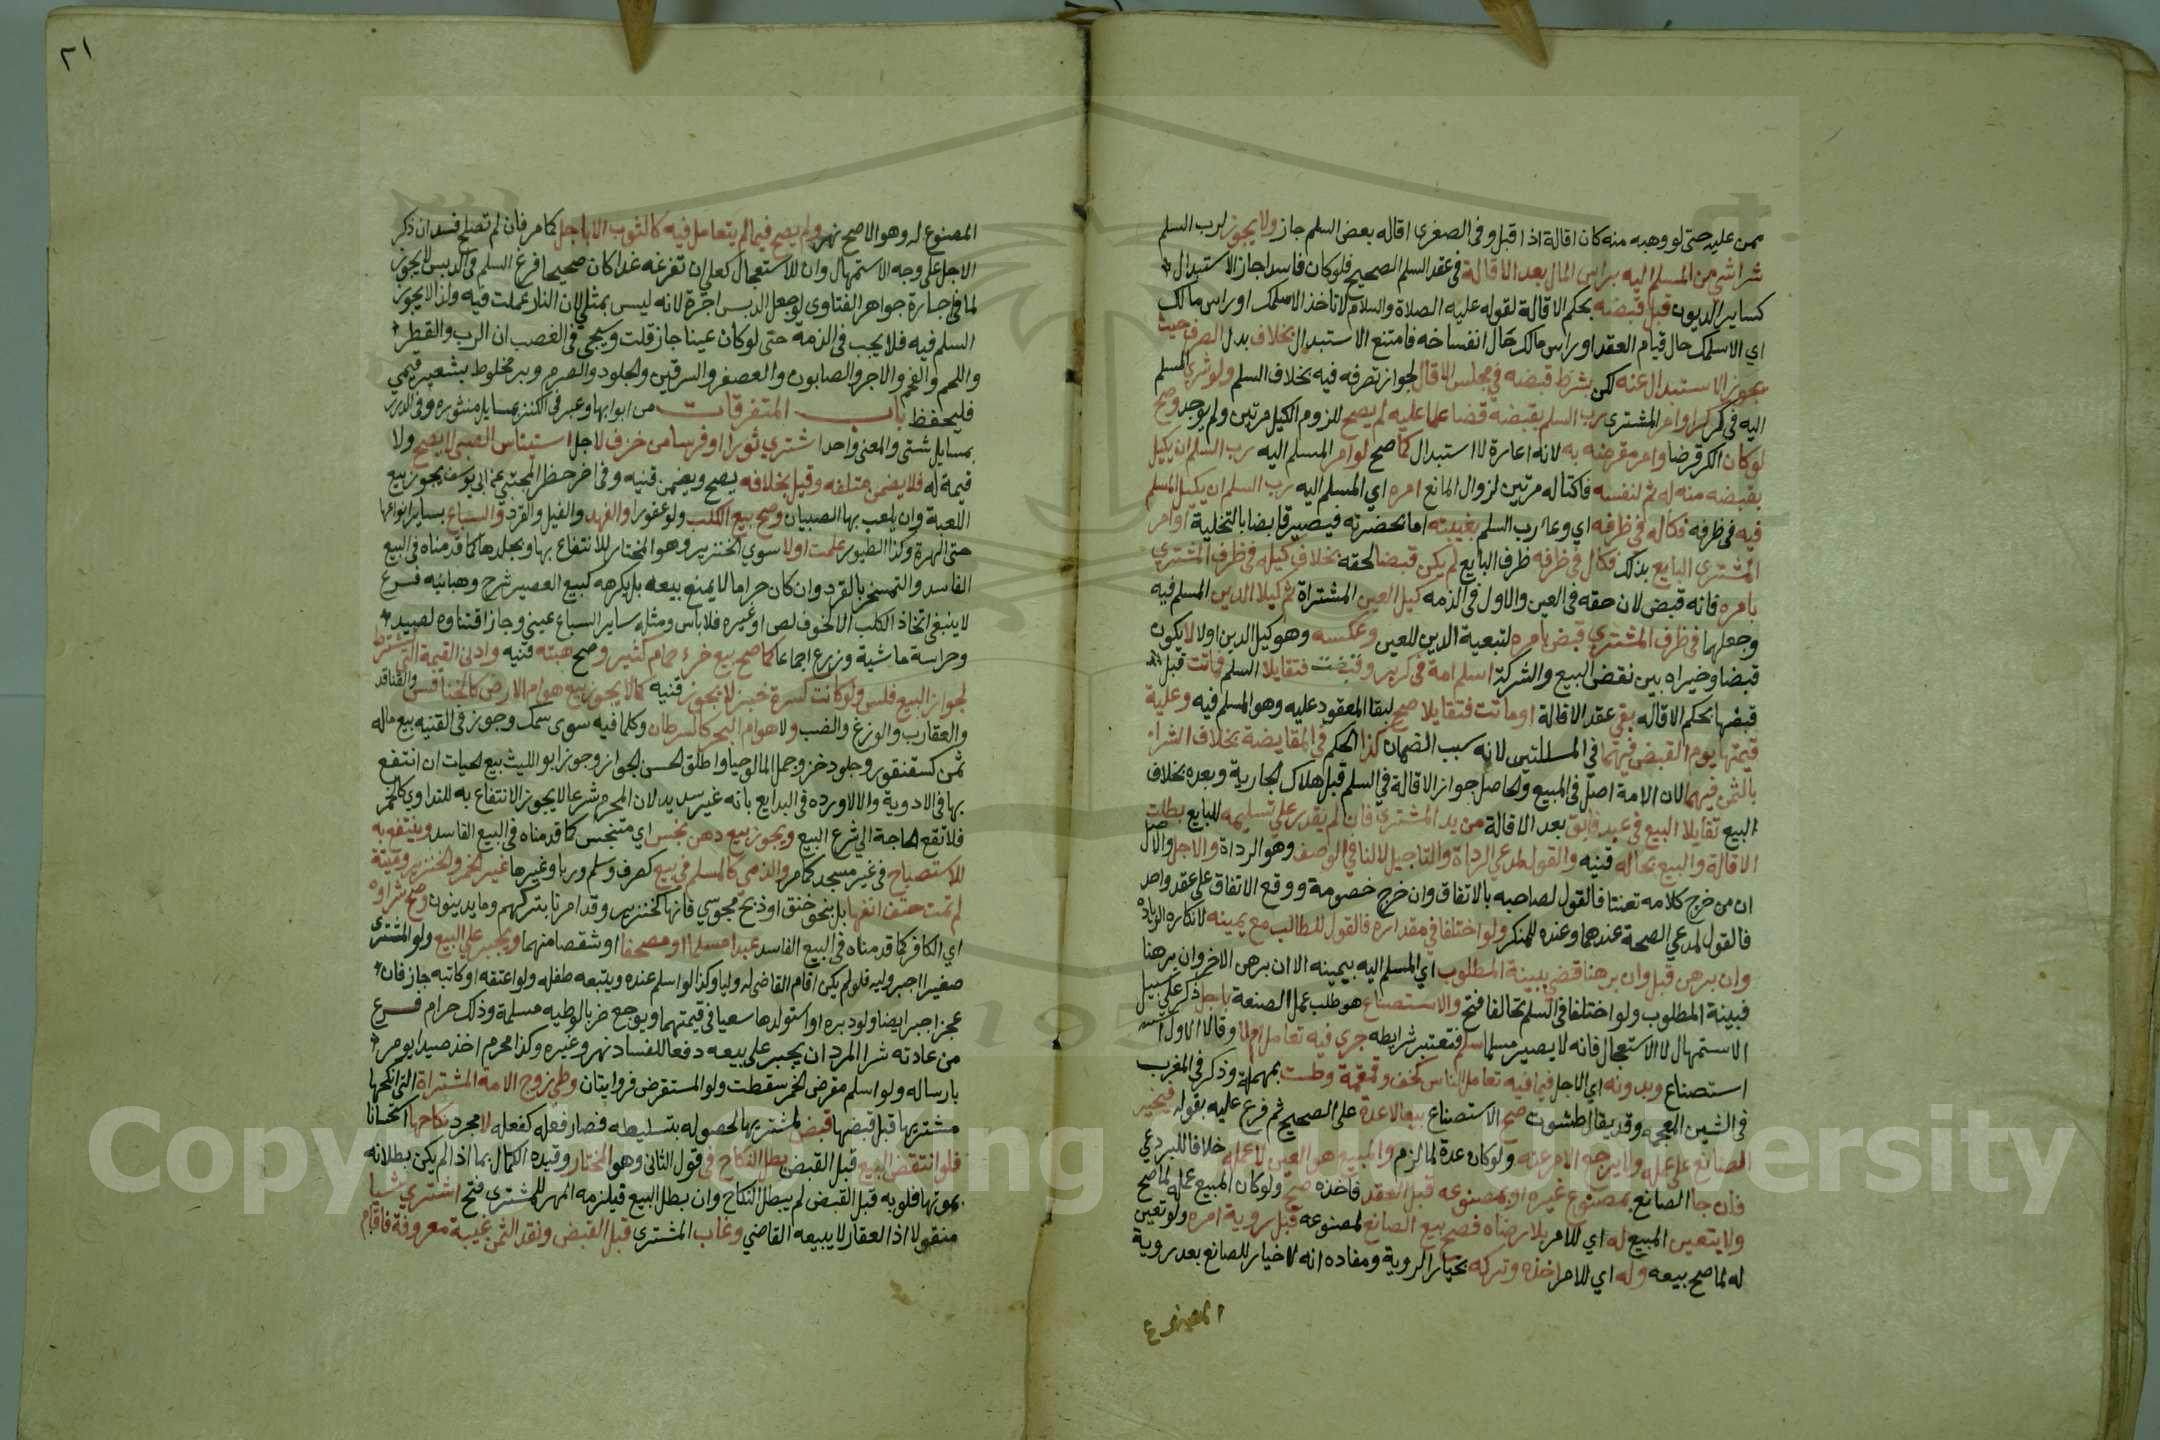 ممن عليه حتى لو وهبه منه كان اقالة اذا قبل وفى الصغرى اقاله بعض السلم جاز ولا يجوز لرب السلم
شراشي من المسلم اليه براس المال بعد الاقالة فى عقد السلم الصحيح فلو كان فاسدا جاز الاستبدال
كساير الديون قبل قبضه بحكم الاقالة لقوله عليه الصلاة والسلام لا تاخذ الا سلمك او راس مالك
اي الا سلمك حال قيام العقد او راس مالك حال انفساخه فامتنع الاستبدال بخلاف بدل الصرف حيث
يجوز الاستبدال عنه لكن بشرط قبضه في مجلس الاقال لجواز تصرفه فيه بخلاف السلم ولو شري المسلم
اليه في كر كرا وامر المشتري رب السلم بقبضه قضا عما عليه لم يصح للزوم الكيل مرتين ولم يوجد وصح
لو كان الكر قرضا وامر مقرضه به لانه اعارة لا استبدال كما صح لو امر المسلم اليه رب السلم ان يكيل
بقبضه منه له ثم لنفسه فاكتاله مرتين لزوال المانع امره اي المسلم اليه رب السلم ان يكيل المسلم
فيه فى ظرفه فكاله فى ظرفه اي وعا رب السلم بغيبته اما بحضرته فيصير قابضا بالتخلية او امر
المشتري البايع بذلك فكال في ظرفه ظرف البايع لم يكن قبضا لحقه بخلاف كيله فى ظرف المشتري
بامره فانه قبض لان حقه فى العين والاول فى الذمه كيل العين المشتراة ثم كيلا الدين المسلم فيه
وجعلهما فى ظرف المشتري قبض بامره لتبعية الدين للعين وعكسه وهو كيل الدين اولا لا يكون
قبضا وخيراه بين نقض البيع والشركة اسلم امة فى كر بر وقبضت فتقايلا السلم فماتت قبل
قبضها بحكم الاقاله بقي عقد الاقالة او ماتت فتقايلا صح لبقا المعقود عليه وهو المسلم فيه وعلية
قيمتها يوم القبض فيهما في المسالتين لانه سبب الضمان كذا الحكم في المقايضة بخلاف الشرا
بالثمن فيهما لان الامة اصل فى المبيع والحاصل جواز الاقالة في السلم قبل هلاك الجارية وبعده بخلاف
البيع تقايلا البيع فى عبد فابق بعد الاقالة من يد المشتري فان لم يقدر علي تسليمه للبايع بطلت
الاقالة والبيع بحاله قنيه والقول لمدعي الرداة والتاجيل لا لنافي الوصف وهو الرداة والاجل والاصل
ان من خرج كلامه تعنتا فالقول لصاحبه بالاتفاق وان خرج خصومة ووقع الاتفاق على عقد واحد
فالقول لمدعي الصحة عندهما وعنده للمنكر ولو اختلفا في مقداره فالقول للطالب مع يمينه لانكاره الزيادة
وان برهن قبل وان برهنا قضى ببينة المطلوب اي المسلم اليه بيمينه الا ان برهن الاخر وان برهنا
فبينة المطلوب ولو اختلفا فى السلم تحالفا فتح والاستصناع هو طلب عمل الصنعة باجل ذكر على سبيل
الاستمهال لا الاستعجال فانه لا يصير سلما سلم فتعتبر شرايطه جري فيه تعامل ام لا وقالا الاول
استصناع وبدونه اي الاجل فيما فيه تعامل الناس كخف وقمقمة وطست بمهملة وذكر فى المغرب
فى الشين المعجمه وقد يقال طشوت صح الاستصناع بيعا لا عدة على الصحيح ثم فرع عليه بقوله فيجبر
الصانع على عمله ولا يرجع الامر عنه ولو كان عدة لما لزم والمبيع هو العين لا عمله خلافا للبردعي
فان جا الصانع بمصنوع غيره او بمصنوعه قبل العقد فاخذه صح ولو كان المبيع عمله لما صح
ولا يتعين المبيع له اي للامر بلا رضاه فصح بيع الصانع لمصنوعه قبل روية امره ولو تعين
له لما صح بيعه وله اي للامر اخذه وتركه بخيار الروية ومفاده انه لا خيار للصانع بعد روية
المصنوع
٢١
المصنوع له وهو الاصح نهر ولم يصح فيما لم يتعامل فيه كالثوب الا باجل كما مر فان لم تصلح فسد ان ذكر
الاجل على وجه الاستمهال وان للاستعجال كعلي ان تفرغه غدا كان صحيحا فرع السلم فى الدبس لا يجوز
لما فى اجارة جواهر الفتاوى لو جعل الدبس اجرة لانه ليس بمثلي لان النار عملت فيه ولذا لا يجوز
السلم فيه فلا يجب فى الذمة حتى لو كان عينا جاز قلت وسيجى فى الغصب ان الرب والقطر
واللحم والفحم والاجر والصابون والعصفر والسرقين والجلود والصرم وبر مخلوط بشعير قيمي
فليحفظ باب المتفرقات من ابوابها وعبر فى الكنز بمسايل منثورة وفى الدرر
بمسايل شتى والمعنى واحد اشتري ثورا او فرسا من خزف لاجل استيناس الصبى لا يصح ولا
قيمة له فلا يضمن متلفه وقيل بخلافه يصح ويضمن قنيه وفى اخر حظر المجتبي عن ابى يوسف يجوز بيع
اللعبة وان يلعب بها الصبيان وصح بيع الكلب ولو عقورا والفهد والفيل والقرد والسباع بساير انواعها
حتى الهرة وكذا الطيور علمت اولا سوي الخنزير وهو المختار للانتفاع بها وبجلدها كما قدمناه فى البيع
الفاسد والتمسخر بالقرد وان كان حراما لا يمنع بيعه بل يكرهه كبيع العصير شرح وهبانيه فرع
لا ينبغى اتخاذ الكلب الا لخوف لص او غيره فلا باس ومثله ساير السباع عيني وجاز اقتناوه لصيد
وحراسة ماشية وزرع اجماعا كما صح بيع خرء حمام كثير وصح هبته قنيه وادنى القيمة التى تشترط
لجواز البيع فلس ولو كانت كسرة خبز لا يجوز قنيه كما لا يجوز بيع هوام الارض كالخنافس والقنافذ
والعقارب والوزغ والضب ولا هوام البحر كالسرطان وكلما فيه سوى سمك وجوز فى القنيه بيع ماله
ثمن كسقنقور وجلود خز وجمل المالوجيا واطلق الحسن الجواز وجوز ابو الليث بيع الحيات ان انتفع
بها فى الادوية والا لا ورده فى البدايع بانه غير سديد لان المحرم شرعا لا يجوز الانتفاع به للتداوي كالخمر
فلا تقع الحاجة الي شرع البيع ويجوز بيع دهن نجس اي متنجس كما قدمناه فى البيع الفاسد وينتفع به
للاستصباح فى غير مسجد كما مر والذمي كالمسلم في بيع كصرف وسلم وربا وغيرها غير الخمر والخنزير وميتة
لم تمت حتف انفها بل بنحو خنق او ذبح مجوسي فانها كخنزير وقد امرنا بتركهم وما يدينون وصح شراوه
اي الكافر كما قدمناه فى البيع الفاسد عبدا مسلما او مصحفا او شقصا منهما ويجبر علي البيع ولو المشترى
صغيرا اجبر وليه فلو لم يكن اقام القاضى له وليا وكذا لو اسلم عنده ويتبعه طفله ولو اعتقه او كاتبه جاز فان
عجز اجبر ايضا ولو دبره او استولدها سعيا فى قيمتهما ويوجع ضربا لوطيه مسلمة وذلك حرام فرع
من عادته شرا المرد ان يجبر على بيعه دفعا للفساد نهر وغيره وكذا محرم اخذ صيدا يومر
بارساله ولو اسلم مقرض الخمر سقطت ولو المستقرض فروايتان وطي زوج الامه المشتراة التى انكحها
مشتريها قبل قبضها قبض لمشتريها لحصوله بتسليطه فصار فعله كفعله لا مجرد نكاحها استحسانا
فلو انتقض البيع قبل القبض بطل النكاح فى قول الثانى وهو المختار وقيده الكمال بما اذا لم يكن بطلانه
بموتها فلو به قبل القبض لم يبطل النكاح وان بطل البيع فيلزمه المهر للمشتري فتح اشتري شيا
منقولا اذ العقار لا يبيعه القاضي وغاب المشتري قبل القبض ونقد الثمن غيبة معروفة فاقام